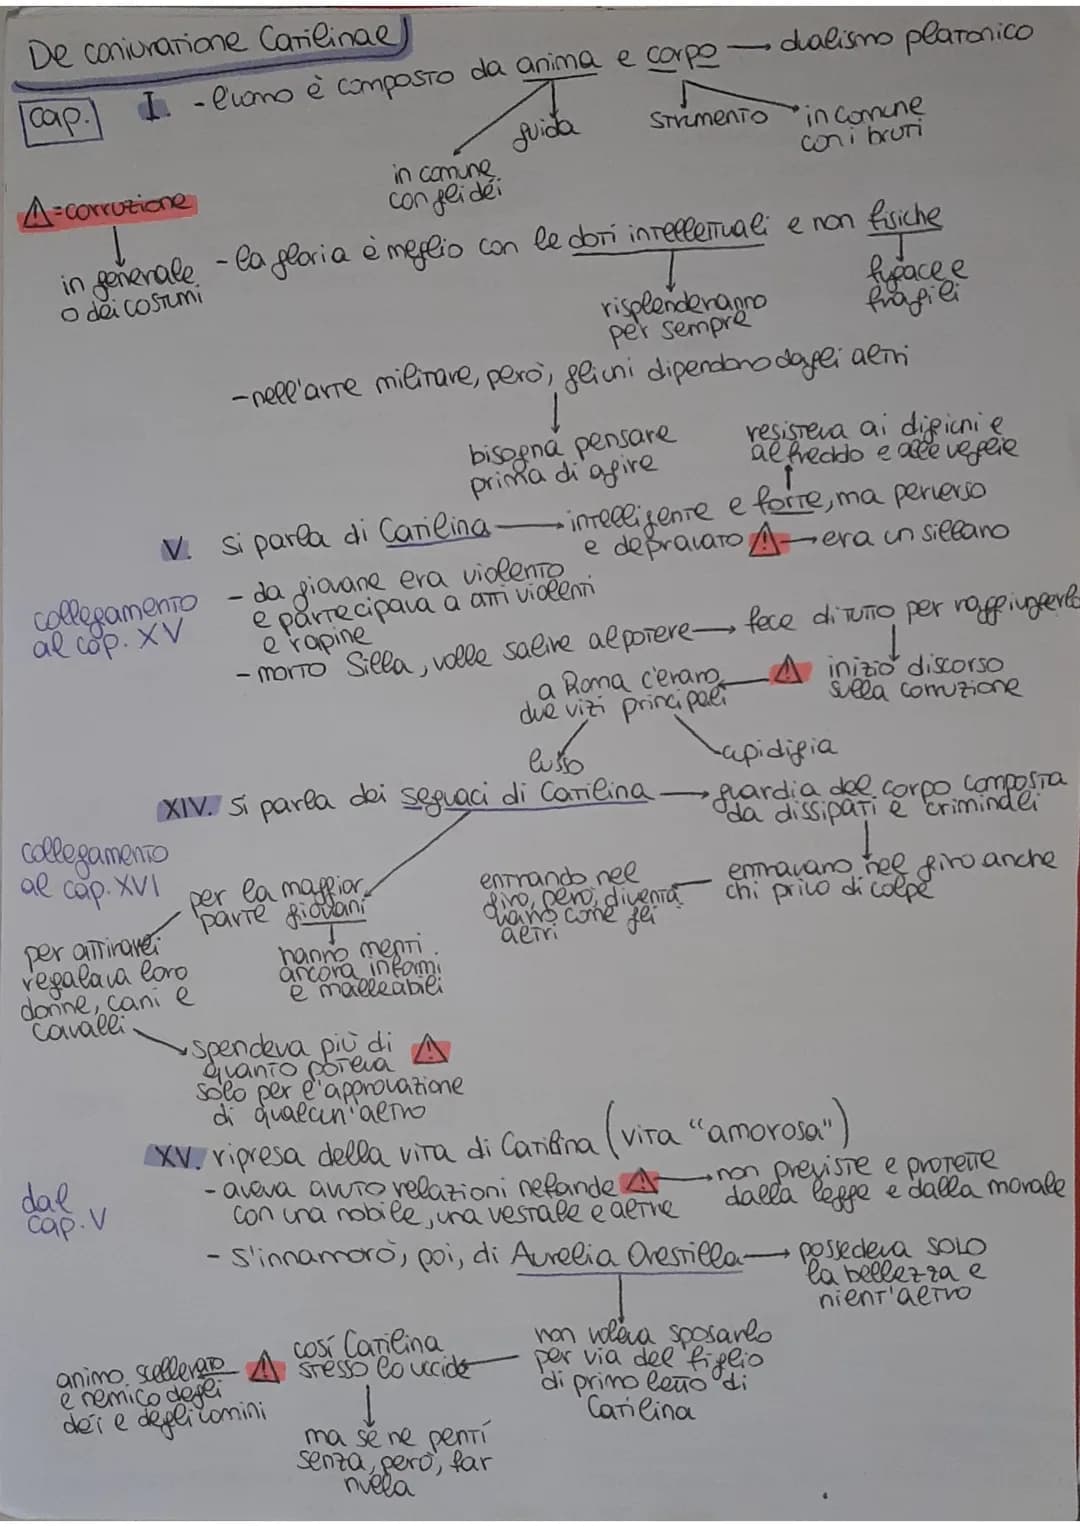 De coniuratione Catilinae
cap. I. - l'uomo è composto da anima e corpo → dualismo platonico
guida
strumento
in comune
con i bruti
in comune
con gli dèi
⚠ = corruzione
in generale
o dei costumi
- la gloria è meglio con le doti intellettuali e non fisiche
risplenderanno
per sempre
fugace e
fragili
- nell'arte militare, però, gli uni dipendono dagli altri
bisogna pensare
prima di agire
resisteva ai digiuni e
al freddo e alle veglie
V. si parla di Catilina → intelligente e forte, ma perverso
e depravato ⚠ → era un sillano
collegamento
al cap. XV
- da giovane era violento
e partecipava a atti violenti
e rapine
- morto Silla, volle salire al potere → fece di tutto per raggiungerlo
inizio discorso
sulla corruzione
⚠
a Roma c'erano
due vizi principali
lusso
cupidigia
XIV. si parla dei seguaci di Catilina → guardia del corpo composta
da dissipati e criminali
collegamento
al cap. XVI
entravano nel giro anche
chi privo di colpe
entrando nel
giro, però, diventa
vano come gli
altri
per la maggior
parte giovani
hanno menti
ancora informi
e malleabili
per attirarli
regalava loro
donne, cani e
cavalli
spendeva più di ⚠
quanto poteva
solo per l'approvazione
di qualcun'altro
XV. ripresa della vita di Catilina (vita "amorosa")
dal
cap. V
- aveva avuto relazioni nefande ⚠ → non previste e protette
con una nobile, una vestale e altre
dalla legge e dalla morale
- s'innamorò, poi, di Aurelia Orestilla → possedeva SOLO
la bellezza e
nient'altro
non voleva sposarlo
per via del figlio
di primo letto di
Catilina
così Catilina
stesso lo uccide
⚠ animo scellerato
e nemico degli
dei e degli uomini
ma se ne pentì
senza, però, far
nulla